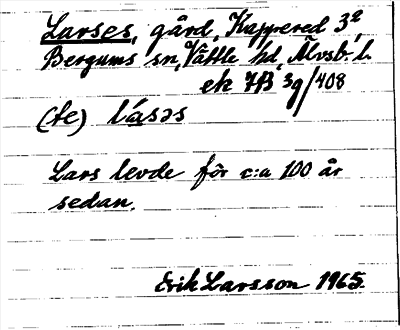 Larses, gård, Kapprered 3²,
Bergums sn, Vättle hd, Älvsb. l.
ek 7B 3g/408
(te) lásəs
Lars levde för c:a 100 år
sedan.
Erik Larsson 1965.